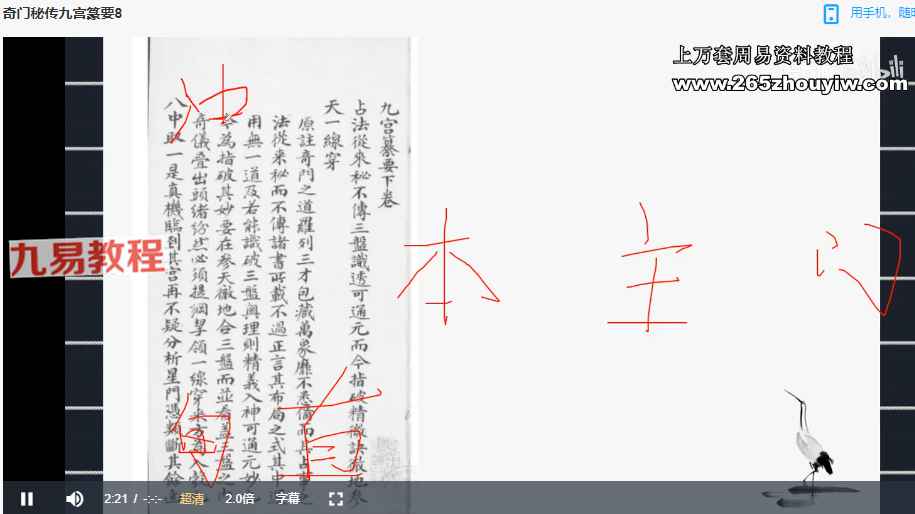 奇门秘传九宫纂要8
用手机，随时
上万套周易资料教程
www.265zhouyiw.com
九易教程
九宫纂要下卷
占法從來秘不傳三盤識透可通元而今指破精微訣徹地參
天一線穿
原註奇門之道羅列三才包藏萬象靡不悉備而其占事之
法從來秘而不傳諸書所載不過正言其布局之式其中
用無一道及若能識破三盤與理則精義入神可通元妙
今為指破其妙要在參天徹地合三盤而並看蓋三盤之內
奇儀疊出頭緒紛然必須提綱挈領一線穿來方為入
八中取一是真機臨到其宮再不疑分析星門憑類斷其餘
冲
本 主
2:21 / -:-:-
超清
2.0倍
字幕